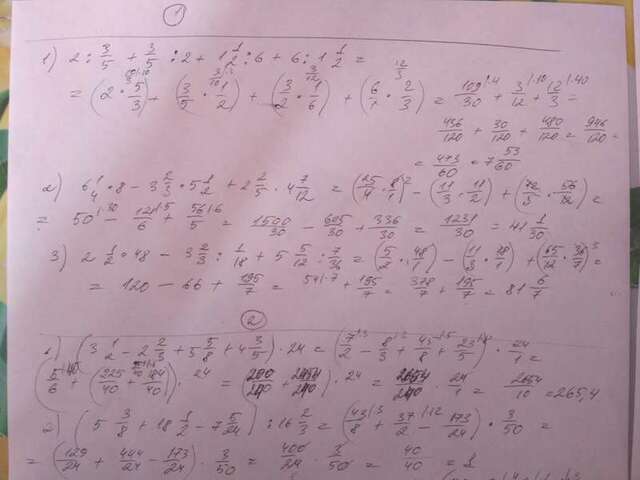 1
1) 2 : 3/5 + 3/5 : 2 + 1 1/2 : 6 + 6 : 1 1/2 =
= (2 · 5/3) + (3/5 · 1/2) + (3/2 · 1/6) + (6/1 · 2/3) = 109/30 + 3/12 + 12/3 =
436/120 + 30/120 + 480/120 = 946/120 =
= 473/60 = 7 53/60
2) 6 1/4 · 8 - 3 2/3 · 5 1/2 + 2 2/5 · 4 7/12 = (25/4 · 8/1) - (11/3 · 11/2) + (12/5 · 56/12) =
= 50 - 121/6 + 56/5 = 1500/30 - 605/30 + 336/30 = 1231/30 = 41 1/30
3) 2 1/2 · 48 - 3 2/3 : 1/18 + 5 5/12 : 7/36 = (5/2 · 48/1) - (11/3 · 18/1) + (65/12 · 36/7) =
= 120 - 66 + 195/7 = 54 + 195/7 = 378/7 + 195/7 = 81 6/7
2
1) (3 1/2 - 2 2/3 + 5 5/8 + 4 3/5) · 24 = (7/2 - 8/3 + 43/8 + 23/5) · 24/1 =
(5/6 + (225/40 + 184/40) · 24 = · 24 = · 24/1 = 2654/10 = 265,4
2) (5 3/8 + 18 1/2 - 7 5/24) : 16 2/3 = (43/8 + 37/2 - 173/24) · 3/50 =
= (129/24 + 444/24 - 173/24) · 3/50 = 400/24 · 3/50 = 40/40 = 1